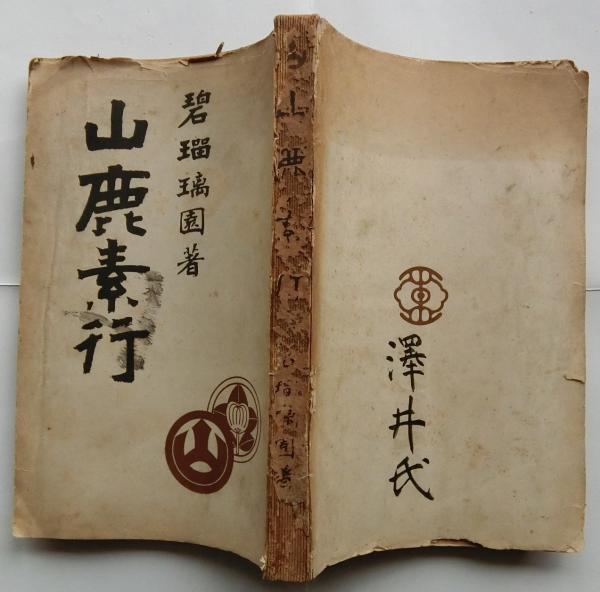 碧瑠璃園著
山鹿素行
山鹿素行
瑠璃園著
澤井氏